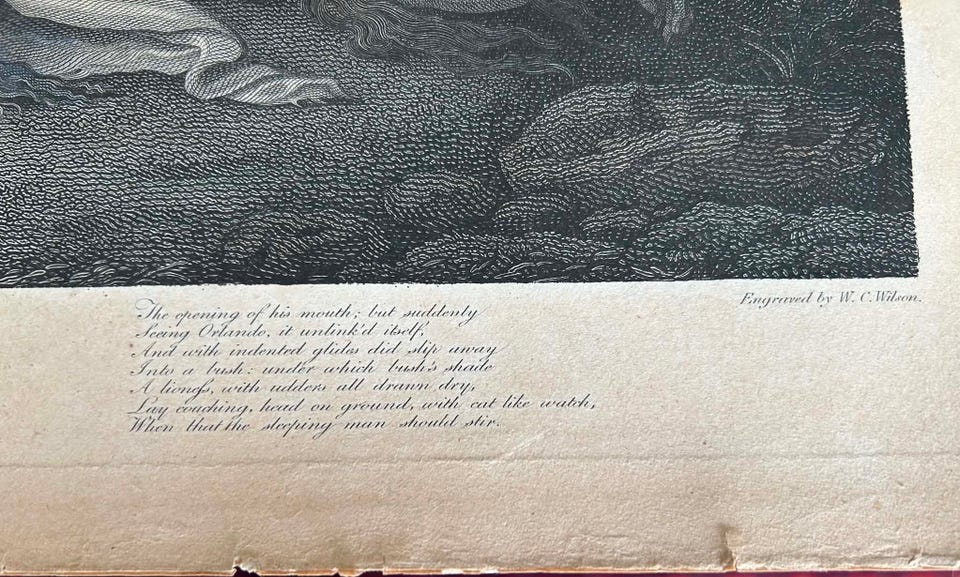 Engraved by W. C. Wilson.
The opening of his mouth; but suddenly
Seeing Orlando, it unlink'd itself,
And with indented glides did slip away
Into a bush: under which bush's shade
A lioneſs, with udders all drawn dry,
Lay couching, head on ground, with cat like watch,
When that the sleeping man should stir.